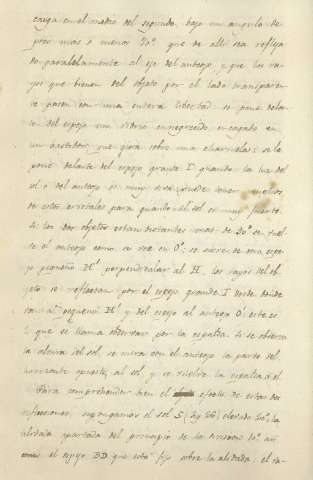 caiga en el medio del segundo, bajo un angulo de
poco mas o menos 20º que de alli sea refleja
do paralelamente al eje del anteojo, y que los ra
yos que vienen del objeto por el lado transparen
te pasen con una entera libertad: se pone delan
te del espejo un vidrio ennegrecido, encajado en
un bastidor que gira sobre una charnela: se le
pone delante del espejo grande I quando la luz del
sol o del anteojo es muy viva; puede tener muchos
de estos cristales para quando el sol es muy fuerte.
Si los dos objetos estan distantes mas de 90º se
el anteojo como se vee en O': se sirve de otro espe
jo pequeño H' perpendicular al H, los rayos del ob
jeto se reflectan por el espejo grande I desde donde
van al pequeño H' y del espejo al anteojo O' este es
lo que se llama observar por la espalda. Si se observa
la altura del sol, se mira con el anteojo la parte del
horizonte opuesta al sol y se vuelve la espalda a el.
Para comprehender bien el efecto de estas dos
reflecciones supongamos el sol S (fig 66) elevado 20º, la
alidada apartada del principio de la division 10º asi
como el espejo BD que esta fijo sobre la alidada: el ra-